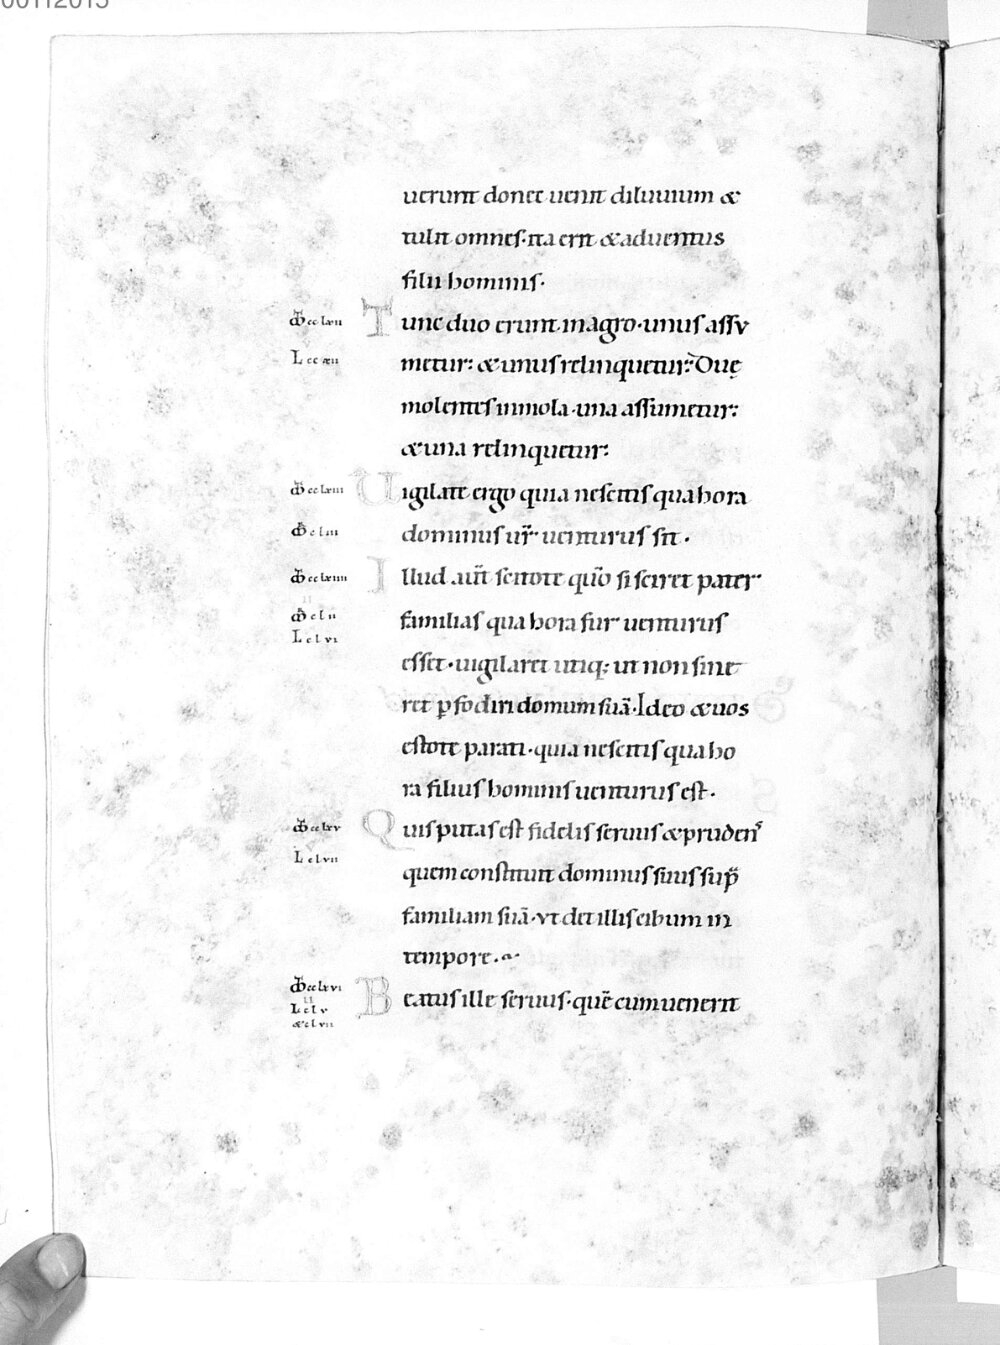 uerunt donec uenit diluuium &
tulit omnes· ita erit & aduentus
filii hominis·
Tunc duo erunt in agro· unus assu
metur: & unus relinquetur: Duę
molentes in mola· una assumetur:
& una relinquetur:
Uigilate ergo quia nescitis qua hora
dominus ur̄ uenturus sit·
Illud aut̄ scitote quō si sciret pater
familias qua hora fur uenturus
esset· uigilaret utiq; ut non sine
ret p̱fodiri domum suā· Ideo & uos
estote parati· quia nescitis qua ho
ra filius hominis uenturus est·
Quis putas est fidelis seruus & prudens
quem constituit dominus suus sup̄
familiam suā· ut det illis cibum in
tempore·
Beatus ille seruus· quē cum uenerit